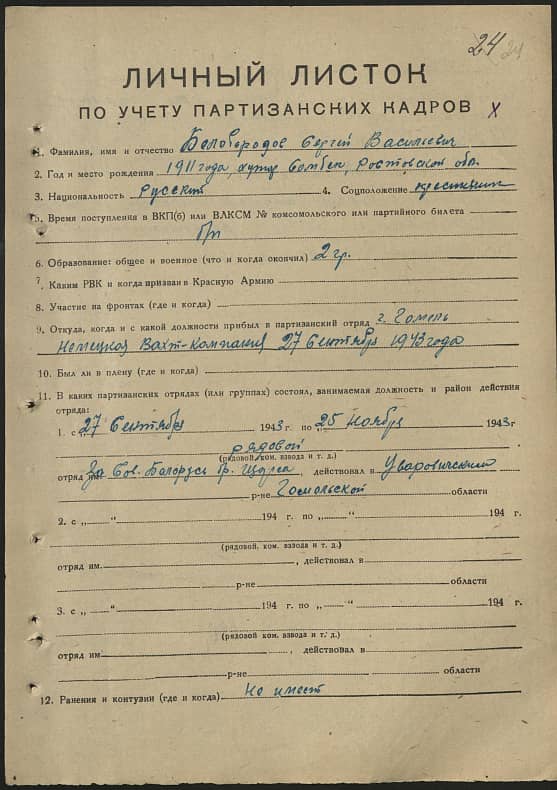 24 24
ЛИЧНЫЙ ЛИСТОК
ПО УЧЕТУ ПАРТИЗАНСКИХ КАДРОВ x
1. Фамилия, имя и отчество Белобородов Сергей Василиевич
2. Год и место рождения 1911 года, хутор Самбек, Ростовской обл.
3. Национальность Русский 4. Соцположение крестьянин
5. Время поступления в ВКП(б) или ВЛКСМ № комсомольского или партийного билета
б/п
6. Образование: общее и военное (что и когда окончил) 2 гр.
7. Каким РВК и когда призван в Красную Армию
8. Участие на фронтах (где и когда)
9. Откуда, когда и с какой должности прибыл в партизанский отряд г. Гомель
Немецкая Вахт-Компания 27 Сентября 1943 года
10. Был ли в плену (где и когда)
11. В каких партизанских отрядах (или группах) состоял, занимаемая должность и район действия
отряда:
1. с 27 Сентября 1943 г. по „25 Ноября 1943 г
рядовой
(рядовой, ком. взвода и т. д.)
отряд им. За Сов. Белорусь бр. Щорса, действовал в Уваровичский
р-не Гомельской области
2. с „ “ 194 г. по „ “ 194 г.
(рядовой. ком. взвода и т. д.)
отряд им. , действовал в
р-не области
3. с „ “ 194 г. по „ “ 194 г.
(рядовой, ком. взвода и т. д.)
отряд им , действовал в
р-не области
12. Ранения и контузии (где и когда) Не имеет